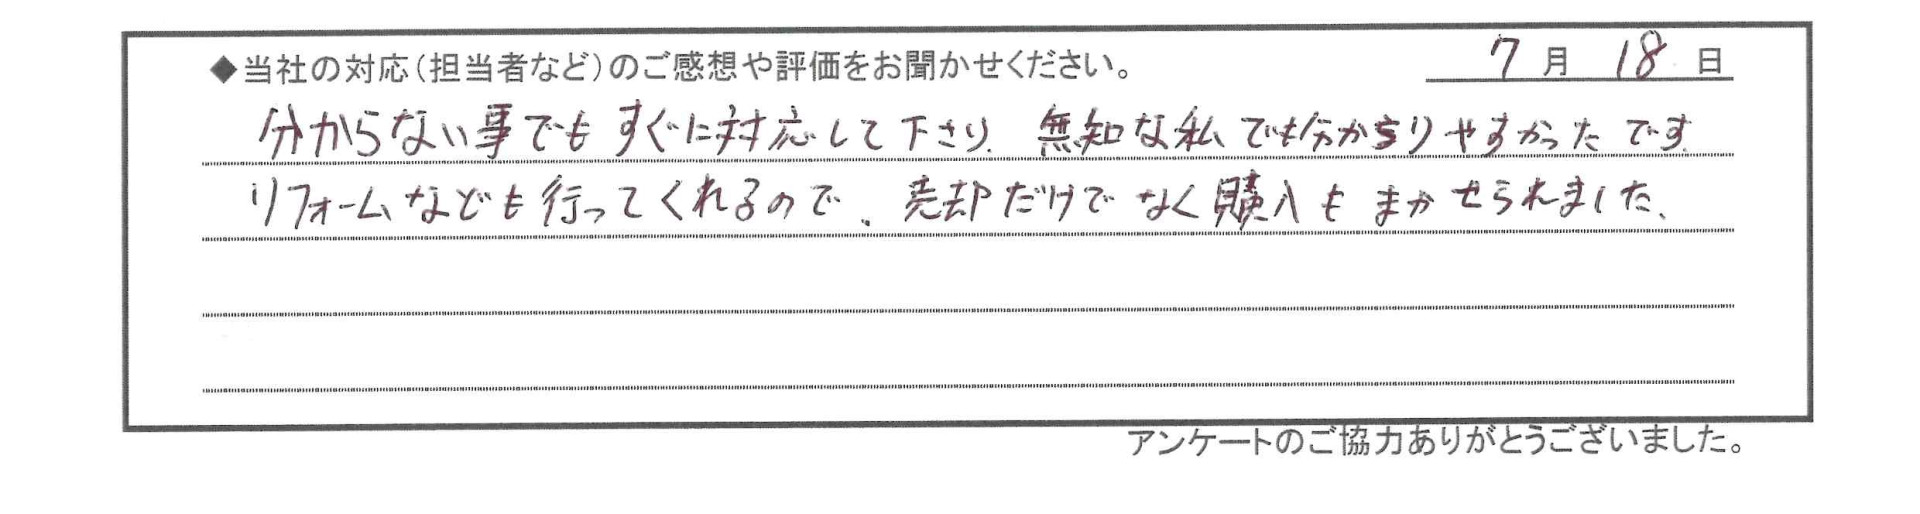 ◆当社の対応(担当者など)のご感想や評価をお聞かせください。 7月 18日
分からない事でもすぐに対応して下さり、無知な私でも分かりやすかったです。
リフォームなども行ってくれるので、売却だけでなく購入もまかせられました。
アンケートのご協力ありがとうございました。